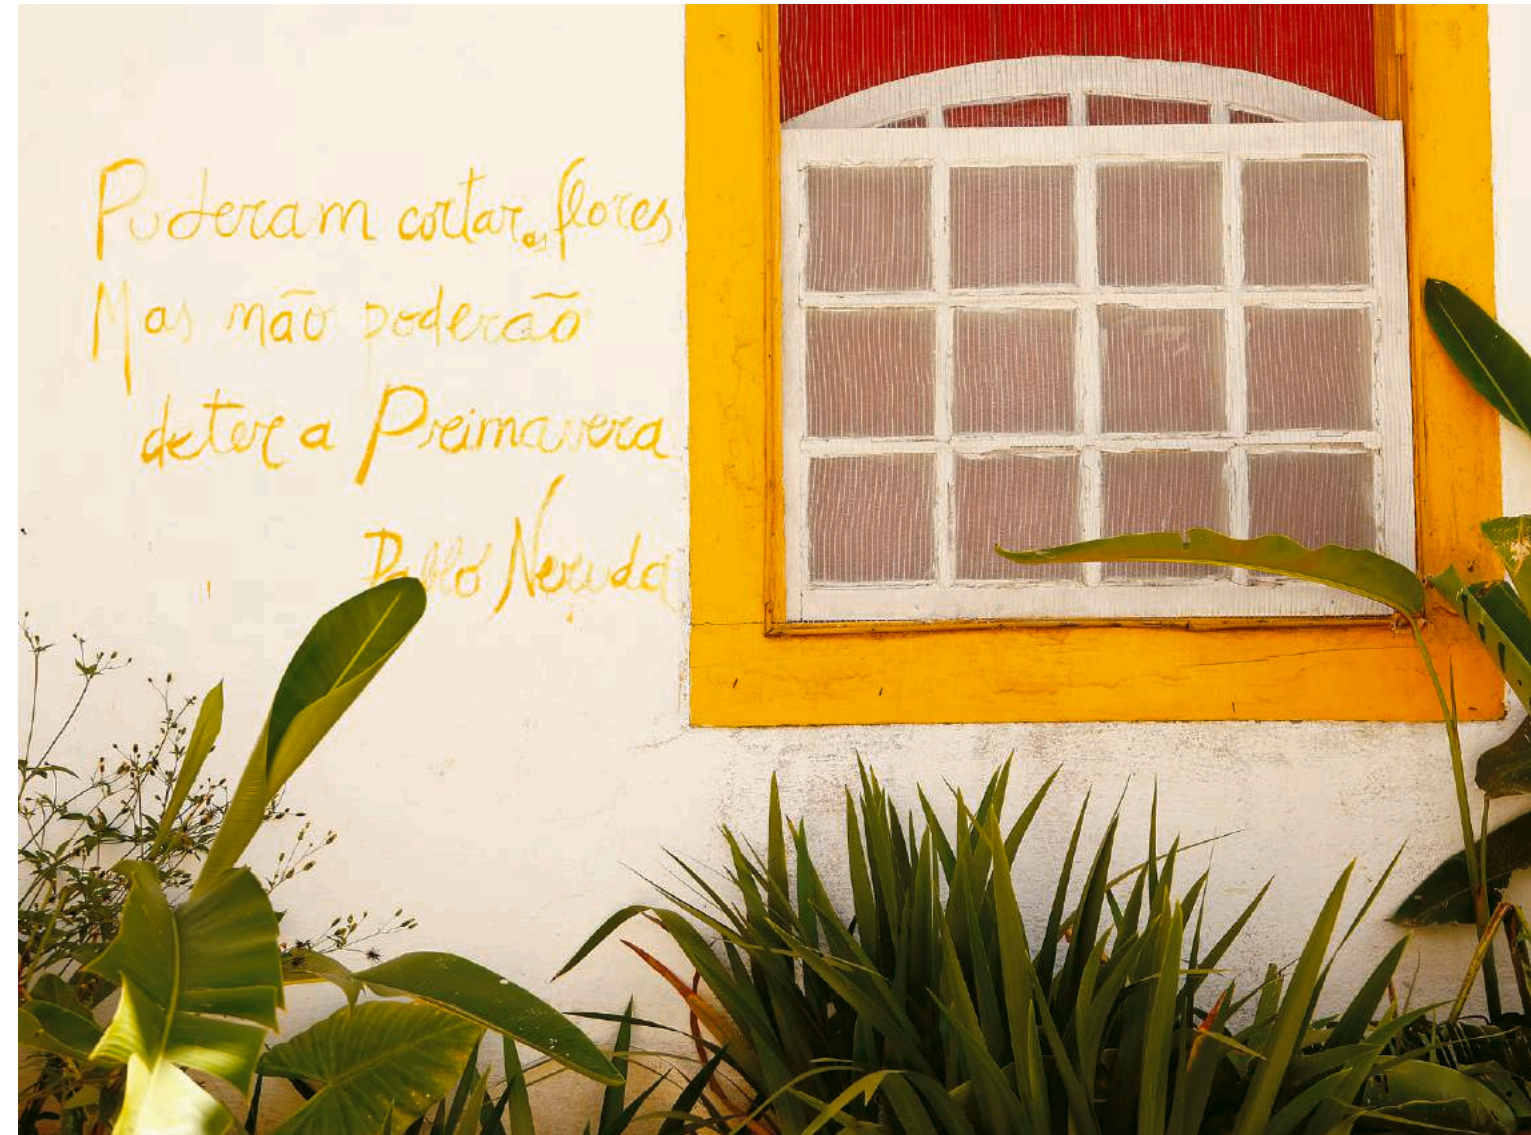 Puderam cortar as flores
Mas não poderão
deter a Primavera
Pablo Neruda